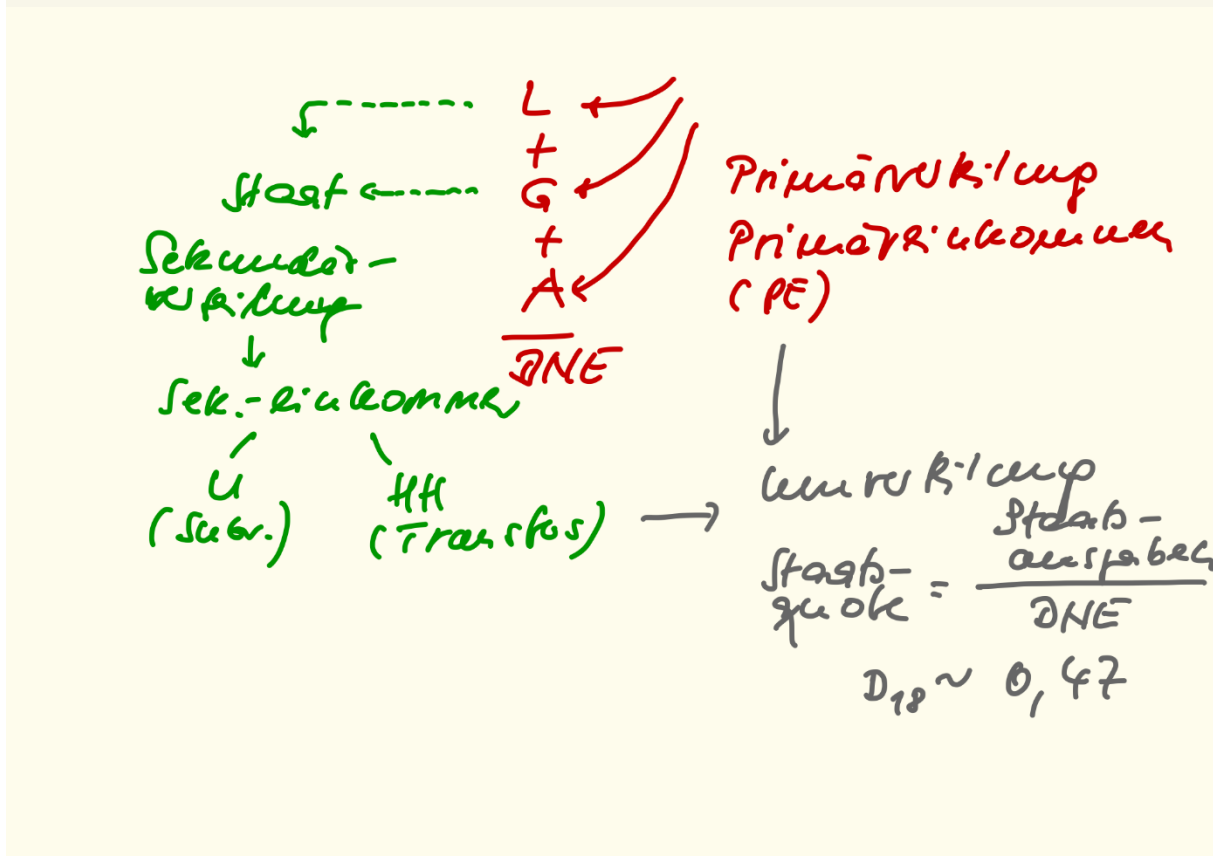 L
+
G
+
A
BNE
Primärverteilung
Primäreinkommen
(PE)
Staat
Sekundär-
verteilung
Sek.-einkommen
U
(Subv.)
HH
(Transfers)
Umverteilung
Staats-
quote = Staats-
ausgaben
BNE
D18 ~ 0,47